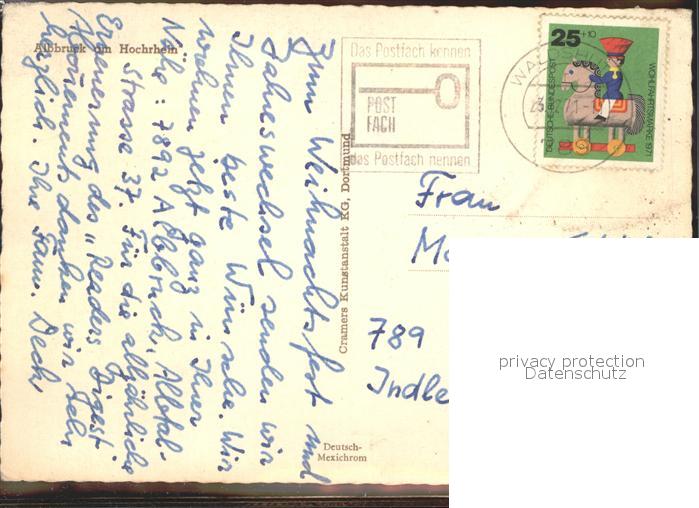 Albbruck am Hochrhein
Zum Weihnachtsfest und
Jahreswechsel senden wir
Ihnen beste Wünsche. Wir
wohnen jetzt ganz in Ihrer
Nähe: 7892 Albbruck, Albtal-
strasse 37. Für die alljährliche
Erneuerung des "Readers Digest
Abonements danken wir sehr
herzlich. Ihre Fam.
Cramers Kunstanstalt KG, Dortmund
Deutsch-
Mexichrom
Das Postfach kennen
POST
FACH
das Postfach nennen
WALDSHU
25+10
DEUTSCHE BUNDESPOST
WOHLFAHRTSMARKE 1971
Frau
789
Indle
privacy protection
Datenschutz